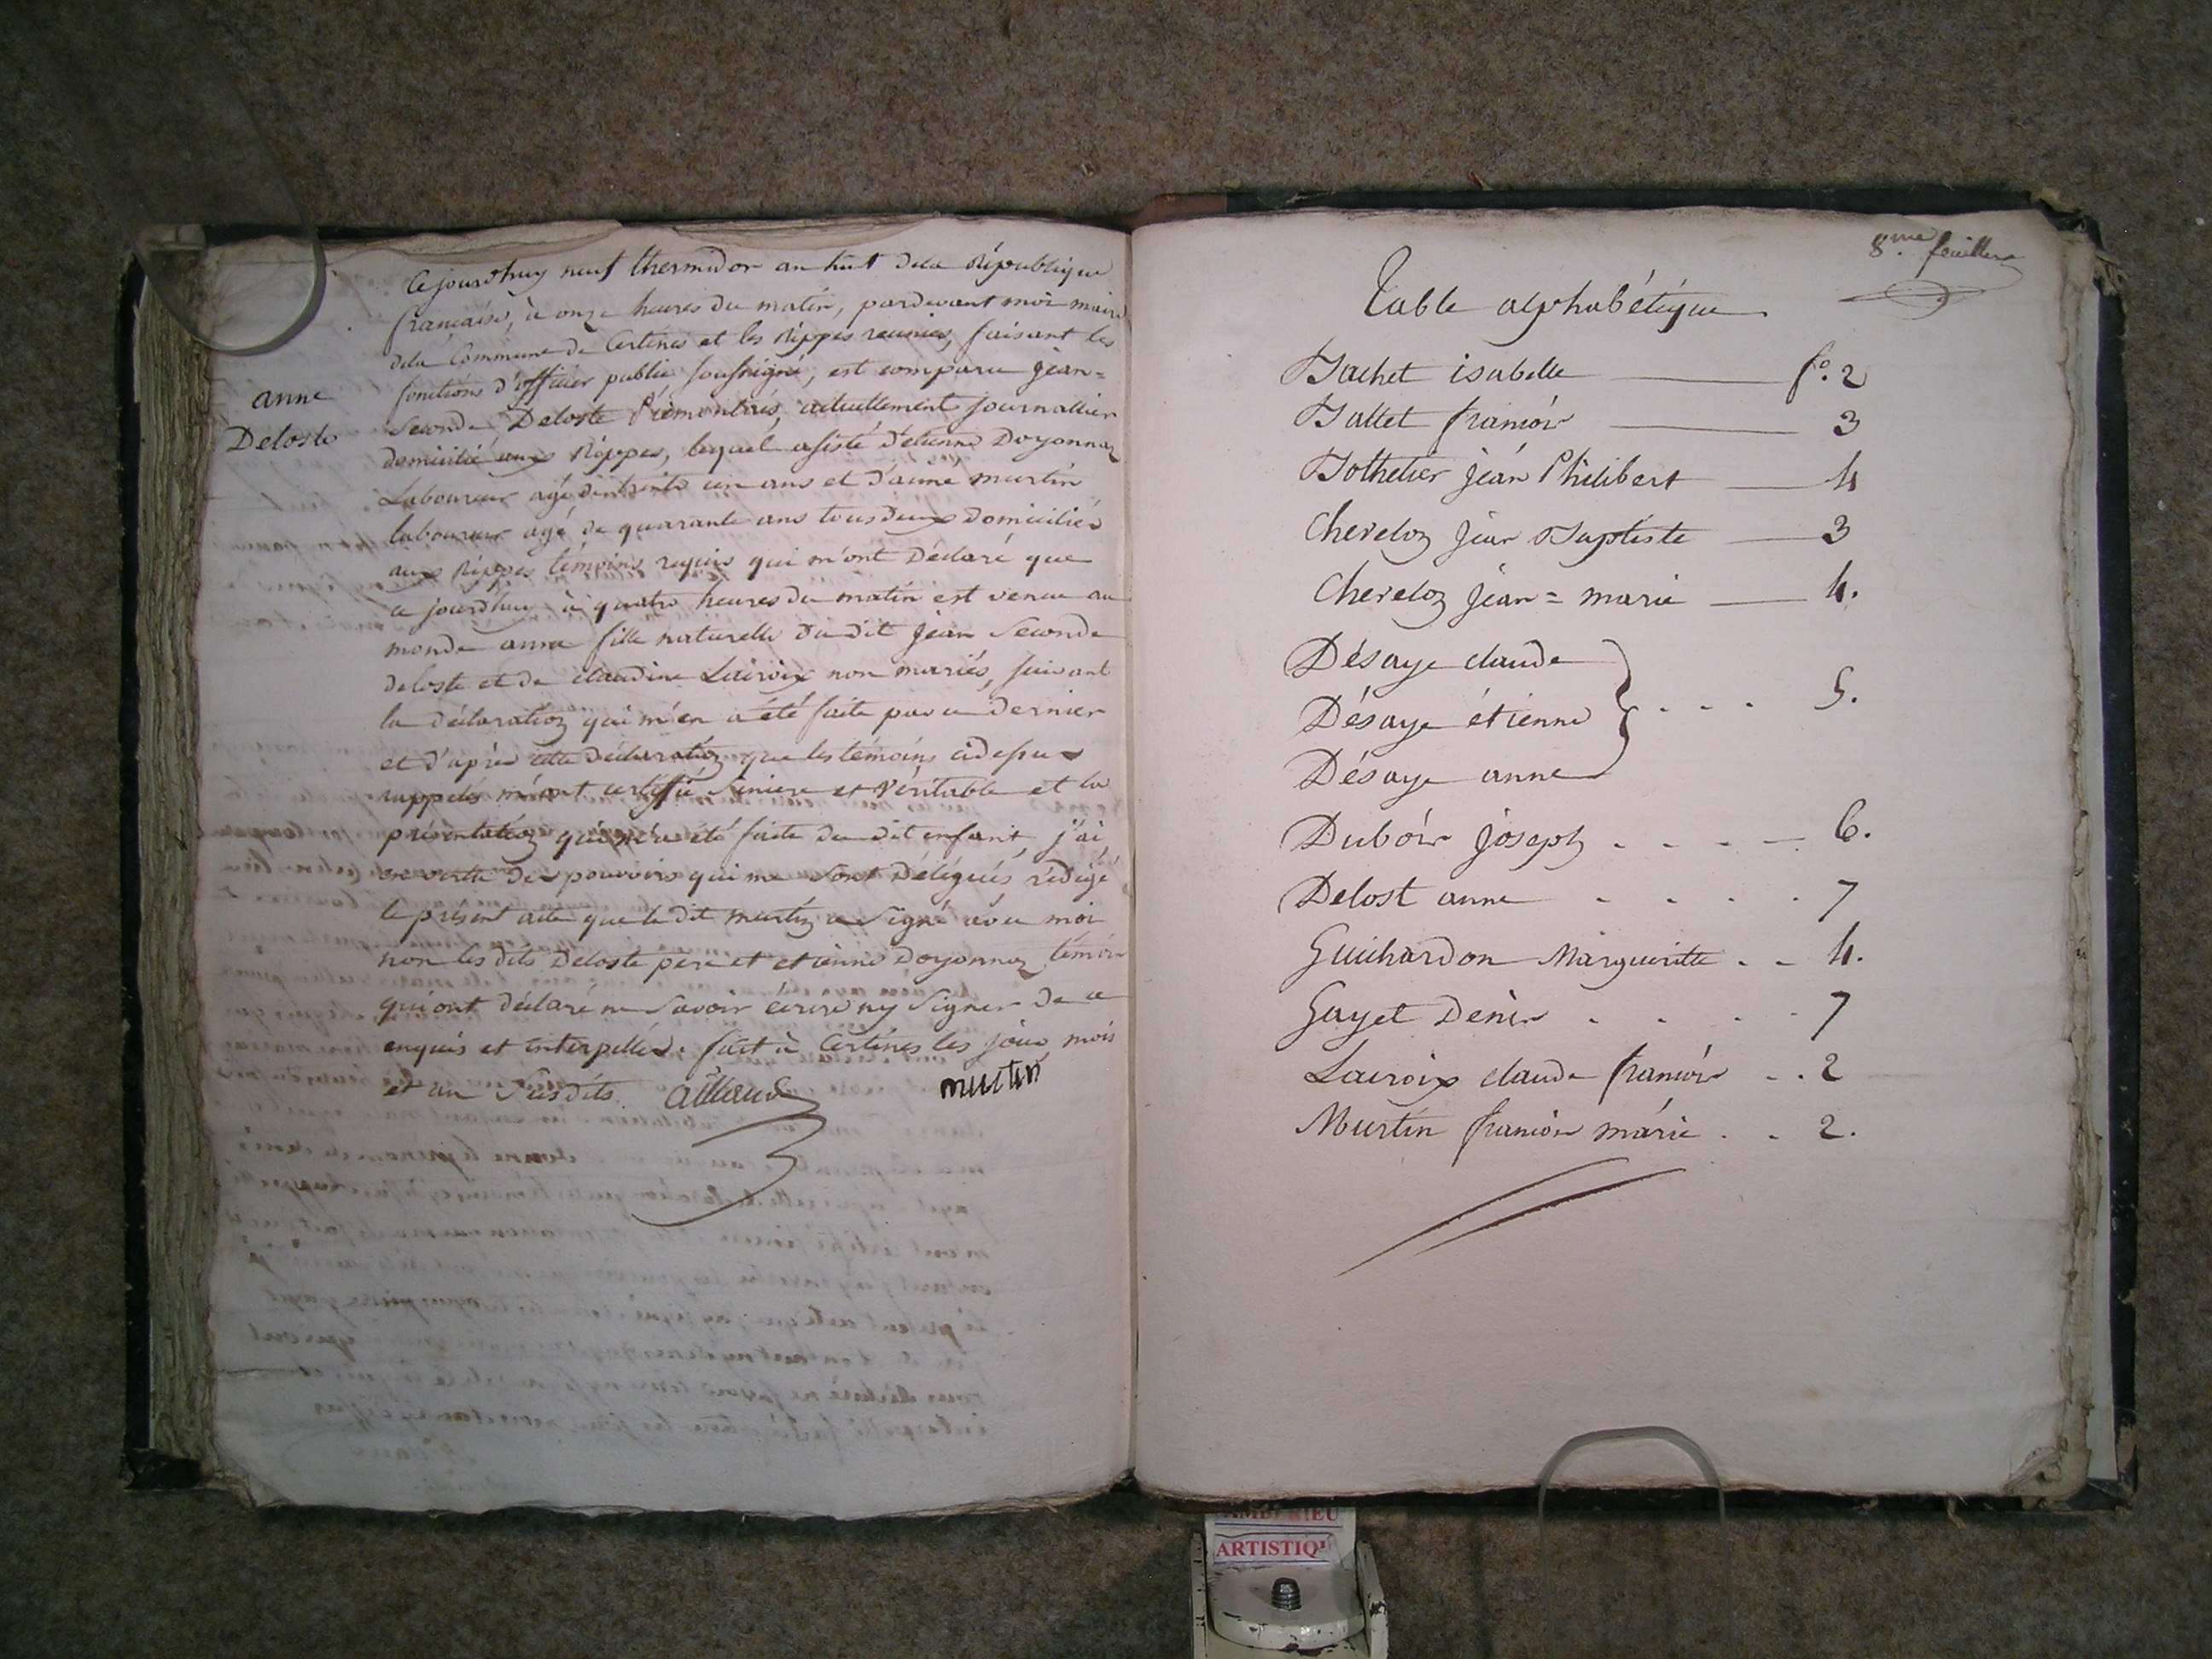 Cejourd'huy neuf thermidor an huit dela République
française, à onze heures du matin, pardevant moi maire
dela Commune de Certines et les Rippes reunies, faisant les
fonctions d'officier public soussigné, est comparu jean=
anne
Deloste
Seconde Deloste Piémontais, actuellement journallier
domicilié aux Rippes, lequel assisté d'étienne Doyonnaz
Laboureur agé de trente un ans et d'aimé martin
laboureur agé de quarante ans tous deux domiciliés
aux Rippes témoins requis qui m'ont Déclaré que
ce jourdhuy à quatre heures du matin est venue au
monde anne fille naturelle du dit jean Seconde
deloste et de claudine Lacroix non mariés, suivant
la déclaration qui m'en a été faite par ce dernier
et d'après cette déclaration que les témoins cidessus
rappelés m'ont certifié sincere et véritable et la
présentation qui m'a été faite du dit enfant, j'ai
en vertu des pouvoirs qui me sont délégués rédigé
le présent acte que le dit martin a signé avec moi
non les dits Deloste père et etienne Doyonnaz témoin
qui ont déclaré ne savoir écrire ny signer de ce
enquis et interpellés. fait à Certines les jour mois
et an susdits.
martin
8.me feuillet
Table alphabétique
Bachet isabelle f.o 2
Ballet françois 3
Bothelier jean Philibert 4
Chereloz jean Baptiste 3
Chereloz jean = marie 4.
Désaye claude
Désaye étienne . . . 5.
Désaye anne
Dubois joseph . . . . 6.
Delost anne . . . . 7
Guichardon Margueritte . . 4.
Gayet Denis . . . . 7
Lacroix claude françois . . 2
Martin françois marie . . 2.
ARTISTIQ